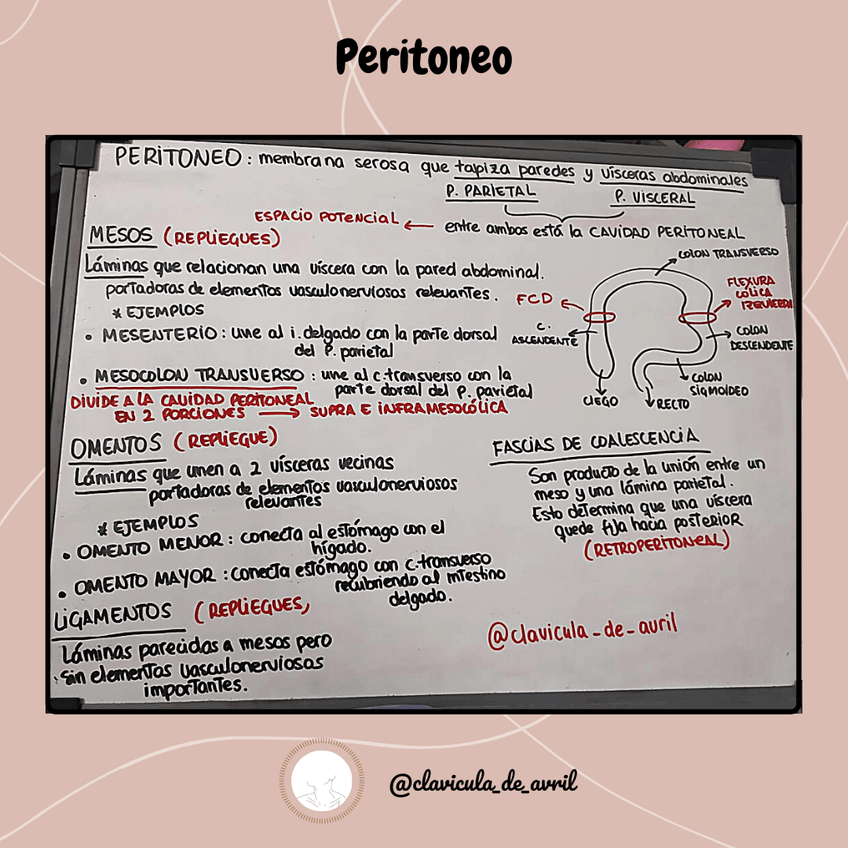 Peritoneo
PERITONEO: membrana serosa que tapiza paredes y vísceras abdominales
P. PARIETAL
P. VISCERAL
ESPACIO POTENCIAL ← entre ambos está la CAVIDAD PERITONEAL
MESOS (REPLIEGUES)
Láminas que relacionan una víscera con la pared abdominal.
portadoras de elementos vasculonerviosos relevantes.
* EJEMPLOS
• MESENTERIO: une al i. delgado con la parte dorsal
del P. parietal
• MESOCOLON TRANSVERSO: une al c. transverso con la
parte dorsal del P. parietal
DIVIDE A LA CAVIDAD PERITONEAL
EN 2 PORCIONES → SUPRA E INFRAMESOCÓLICA
COLON TRANSVERSO
FCD
FLEXURA
CÓLICA
IZQUIERDA
C.
ASCENDENTE
COLON
DESCENDENTE
CIEGO
RECTO
COLON
SIGMOIDEO
OMENTOS (REPLIEGUE)
Láminas que unen a 2 vísceras vecinas
portadoras de elementos vasculonerviosos
relevantes
* EJEMPLOS
• OMENTO MENOR: conecta al estómago con el
hígado.
• OMENTO MAYOR: conecta estómago con c. transverso
recubriendo al intestino
delgado.
LIGAMENTOS (REPLIEGUES)
Láminas parecidas a mesos pero
sin elementos vasculonerviosos
importantes.
FASCIAS DE COALESCENCIA
Son producto de la unión entre un
meso y una lámina parietal.
Esto determina que una víscera
quede fija hacia posterior
(RETROPERITONEAL)
@clavicula_de_avril
@clavicula_de_avril